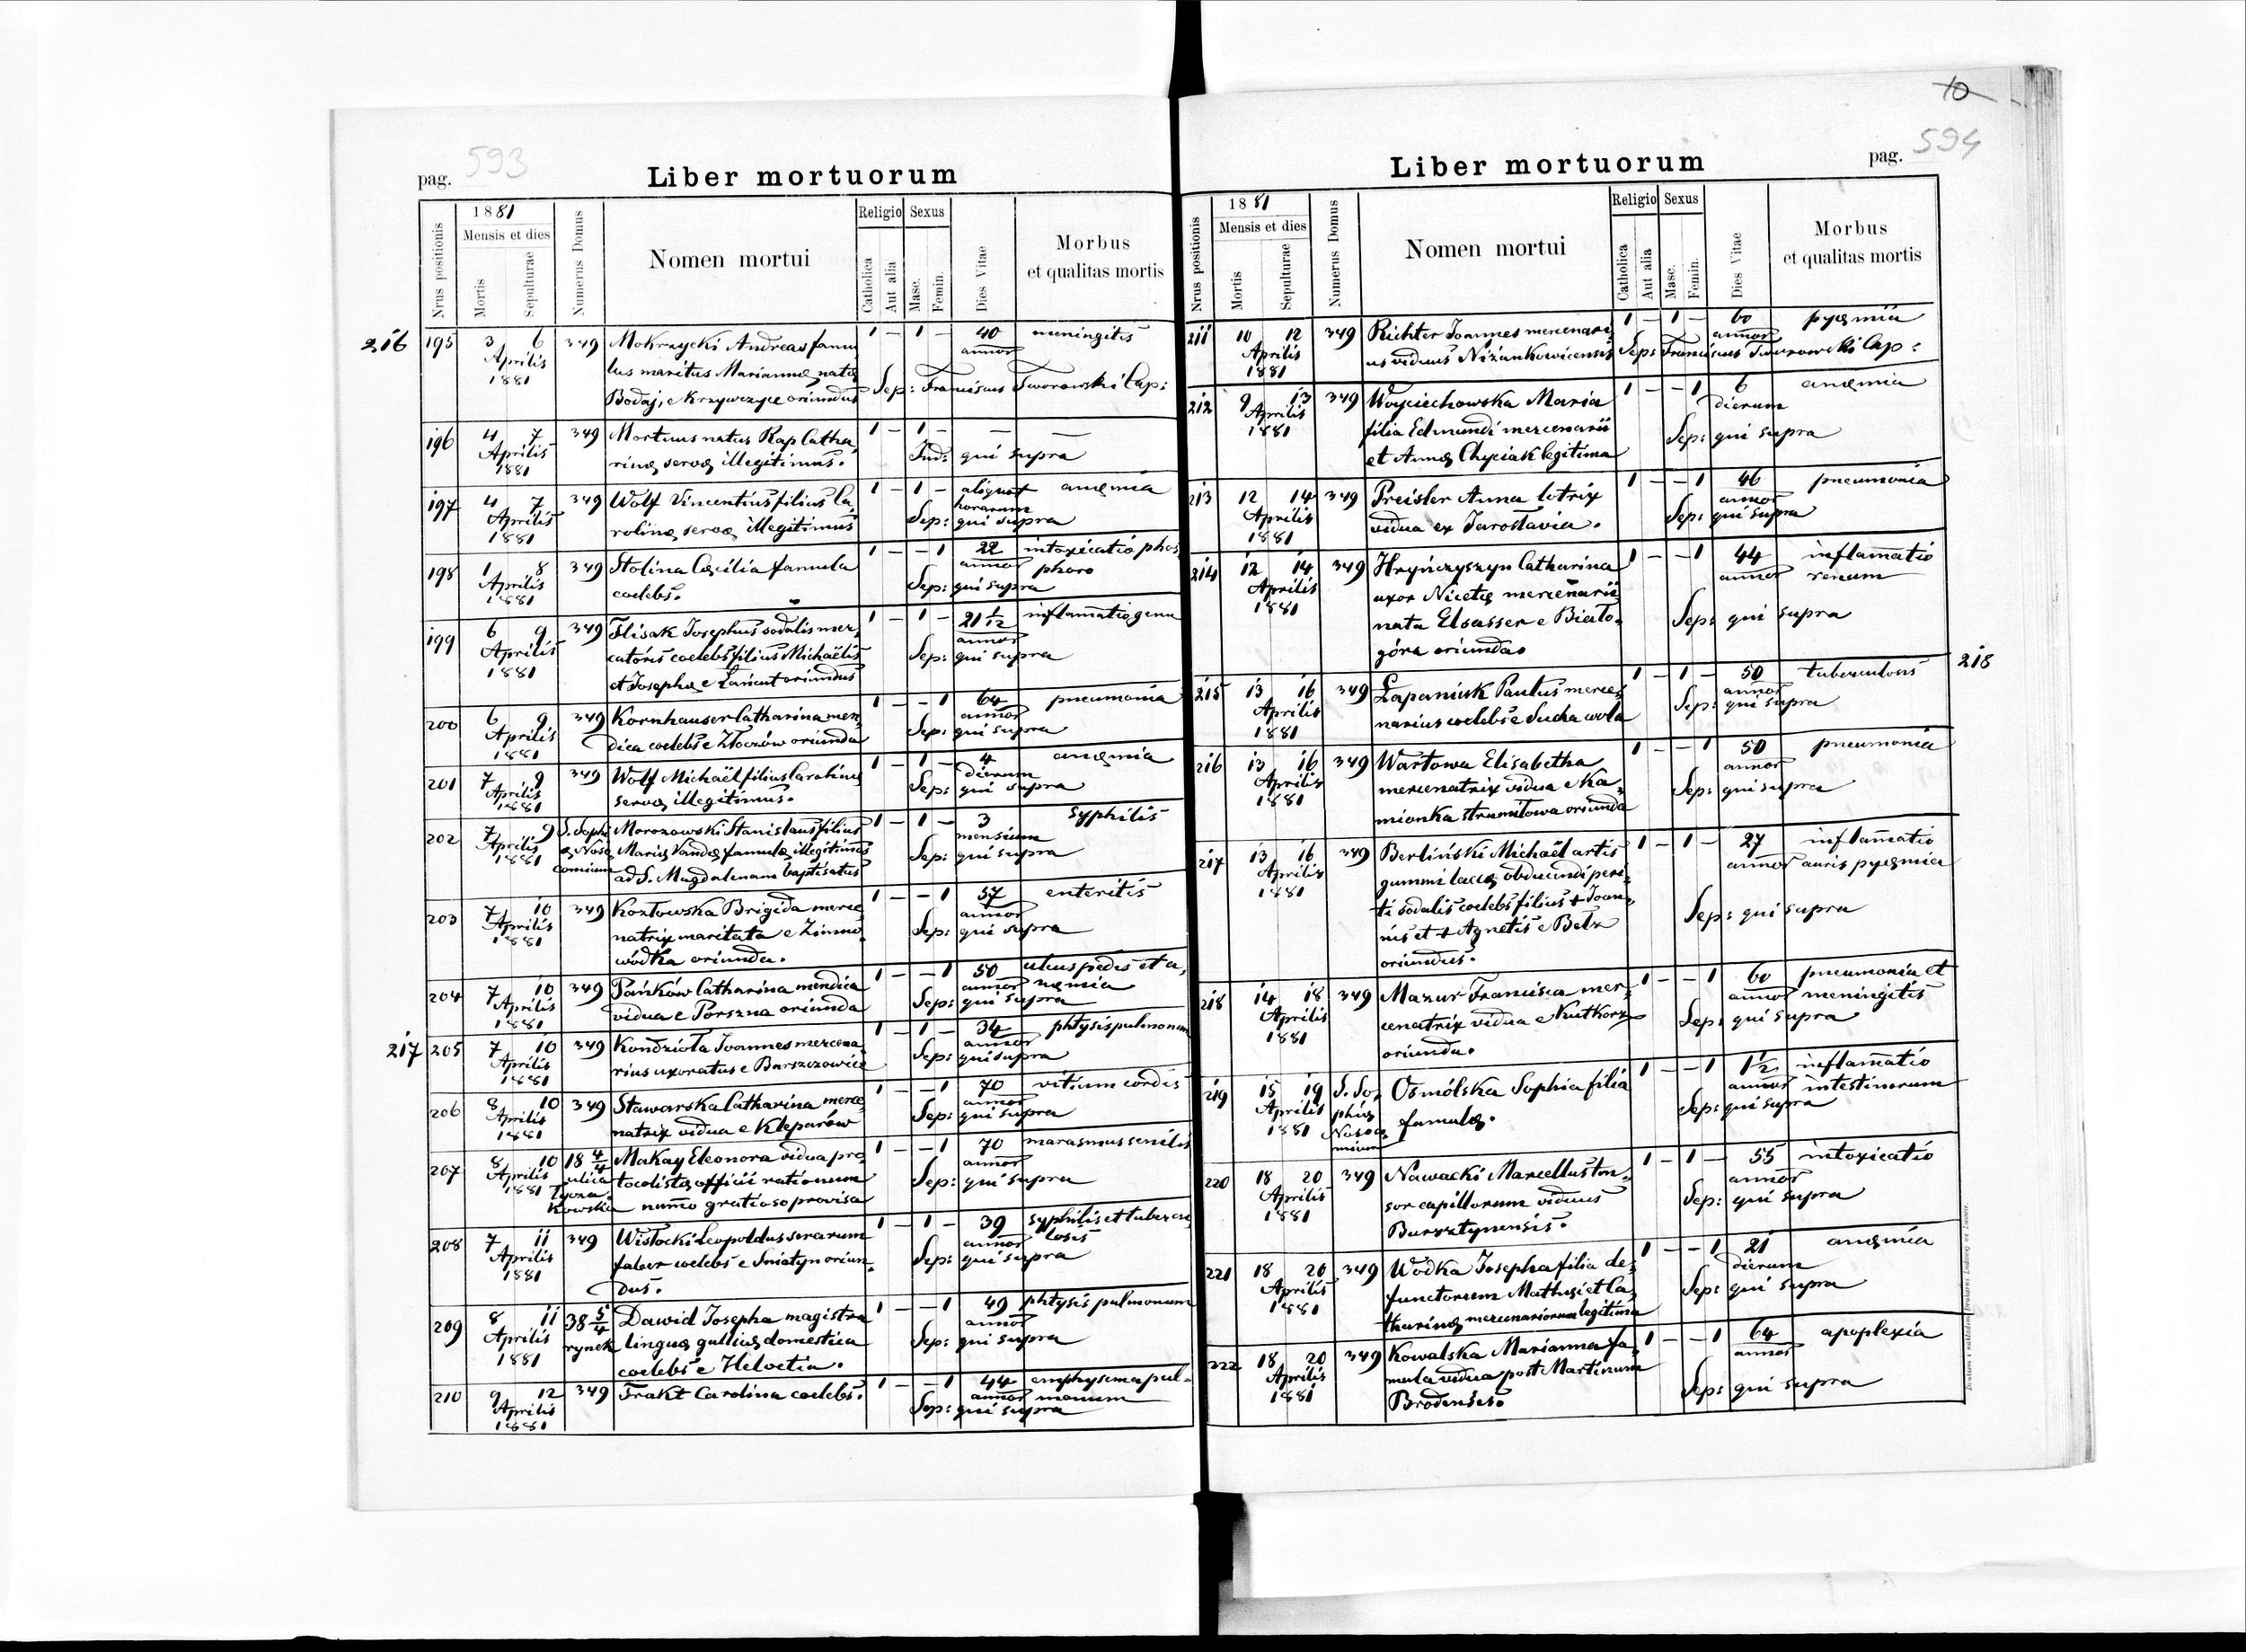 593
pag.
Liber mortuorum
Nrus positionis
1881
Mensis et dies
Mortis
Sepulturae
Numerus Domus
Nomen mortui
Religio
Catholica
Aut alia
Sexus
Masc.
Femin.
Dies Vitae
Morbus
et qualitas mortis
216 195 3 6 349 Mokrzycki Andreas famu 1 – 1 – 40 meningitis
Aprilis lus maritus Mariannę natę annor
1881 Bodaj, e Krzywczyce oriundus Sep: Franciscus Tworowski Cap:
196 4 7 349 Mortuus natus Rap Catha 1 – 1 – — —
Aprilis rinę servę illegitimus. Ind: qui supra
1881
197 4 7 349 Wolf Vincentius filius Ca, 1 – 1 – aliquot anęmia
Aprilis rolinę servę illegitimus horarum
1881 Sep: qui supra
198 1 8 349 Stolina Cęcilia famula 1 – – 1 22 intoxicatio phos,
Aprilis coelebs. annor phoro
1881 Sep: qui supra
199 6 9 349 Flisak Josephus sodalis mer, 1 – 1 – 21 1/12 inflamatio genu
Aprilis catoris coelebs filius Michaëlis annor
1881 et Josephę e Łańcut oriundus Sep: qui supra
200 6 9 349 Kornhauser Catharina men, 1 – – 1 64 pneumonia
Aprilis dica coelebs e Złoczów oriunda annor
1881 Sep: qui supra
201 7 9 349 Wolf Michaël filius Carolinę 1 – 1 – 4 anęmia
Aprilis servę illegitimus. dierum
1881 Sep: qui supra
202 7 9 S. Sophi Morozowski Stanislaus filius 1 – 1 – 3 Syphilis
Aprilis ę Noso Marię Vandę famulę illegitimus mensium
1881 comium ad S. Magdalenam baptisatus Sep: qui supra
203 7 10 349 Kozłowska Brigida merce 1 – – 1 57 enteritis
Aprilis natrix maritata e Zimno annor
1881 wódka oriunda. Sep: qui supra
204 7 10 349 Pańków Catharina mendica 1 – – 1 50 ulcus pedis et a,
Aprilis vidua e Porszna oriunda annor nęmia
1881 Sep: qui supra
217 205 7 10 349 Kondziola Joannes mercena 1 – 1 – 34 phtysis pulmonum
Aprilis rius uxoratus e Barszczowice annor
1881 Sep: qui supra
206 8 10 349 Stawarska Catharina merce 1 – – 1 70 vitium cordis
Aprilis natrix vidua e Kleparów annor
1881 Sep: qui supra
207 8 10 18 4/4 Makay Eleonora vidua pro 1 – – 1 70 marasmus senilis
Aprilis ulica tocolistę officii rationum annor
1881 Łycza kowska numo gratioso provisa Sep: qui supra
208 7 11 349 Wisłocki Leopoldus serarum 1 – 1 – 39 syphilis et tubercu
Aprilis faber coelebs e Sniatyn oriun annor losis
1881 dus. Sep: qui supra
209 8 11 38 5/4 Dawid Josepha magistra 1 – – 1 49 phtysis pulmonum
Aprilis rynek linguę gallicę domestica annor
1881 coelebs e Helvetia. Sep: qui supra
210 9 12 349 Trakt Carolina coelebs. 1 – – 1 44 emphysema pul-
Aprilis annor monum
1881 Sep: qui supra
10
594
Liber mortuorum
pag.
Nrus positionis
1881
Mensis et dies
Mortis
Sepulturae
Numerus Domus
Nomen mortui
Religio
Catholica
Aut alia
Sexus
Masc.
Femin.
Dies Vitae
Morbus
et qualitas mortis
211 10 12 349 Richter Joannes mercenari 1 – 1 – 60 pyęmia
Aprilis us viduus Niżankowicensis annor
1881 Sep: Franciscus Tworowski Cap:
212 9 13 349 Woyciechowska Maria 1 – – 1 6 anęmia
Aprilis filia Edmundi mercenarii dierum
1881 et Annę Chyciak legitima Sep: qui supra
213 12 14 349 Preisler Anna lotrix 1 – – 1 46 pneumonia
Aprilis vidua ex Jaroslavia. annor
1881 Sep: qui supra
214 12 14 349 Hryńczyszyn Catharina 1 – – 1 44 inflamatio
Aprilis uxor Nicetę mercenarii annor renum
1881 nata Elsasser e Biało- Sep: qui supra
góra oriunda.
215 13 16 349 Łapaniuk Paulus merce, 1 – 1 – 50 tuberculosis 218
Aprilis narius coelebs e Sucha wola annor
1881 Sep: qui supra
216 13 16 349 Wartowa Elisabetha 1 – – 1 50 pneumonia
Aprilis mercenatrix vidua e Ka, annor
1881 mionka strumiłowa oriunda Sep: qui supra
217 13 16 349 Berliński Michaël artis 1 – 1 – 27 inflamatio
Aprilis gummi laccę obducendi peri, annor auris pyęmia
1881 ti sodalis coelebs filius + Joan,
nis et + Agnetis e Bełz Sep: qui supra
oriundus.
218 14 18 349 Mazur Francisca mer, 1 – – 1 60 pneumonia et
Aprilis cenatrix vidua e Kutkorz annor meningitis
1881 oriunda. Sep: qui supra
219 15 19 S. So, Osmólska Sophia filia 1 – – 1 1 1/2 inflamatio
Aprilis phię famulę. annor intestinorum
1881 Nosoco mium Sep: qui supra
220 18 20 349 Nawacki Marcellus ton, 1 – 1 – 55 intoxicatio
Aprilis sor capillorum viduus annor
1881 Bursztynensis. Sep: qui supra
221 18 20 349 Wódka Josepha filia de, 1 – – 1 21 anęmia
Aprilis functorum Mathęi et Ca, dierum
1881 tharinę mercenariorum legitima Sep: qui supra
222 18 20 349 Kowalska Marianna fa, 1 – – 1 64 apoplexia
Aprilis mula vidua post Martinum annor
1881 Brodensis. Sep: qui supra